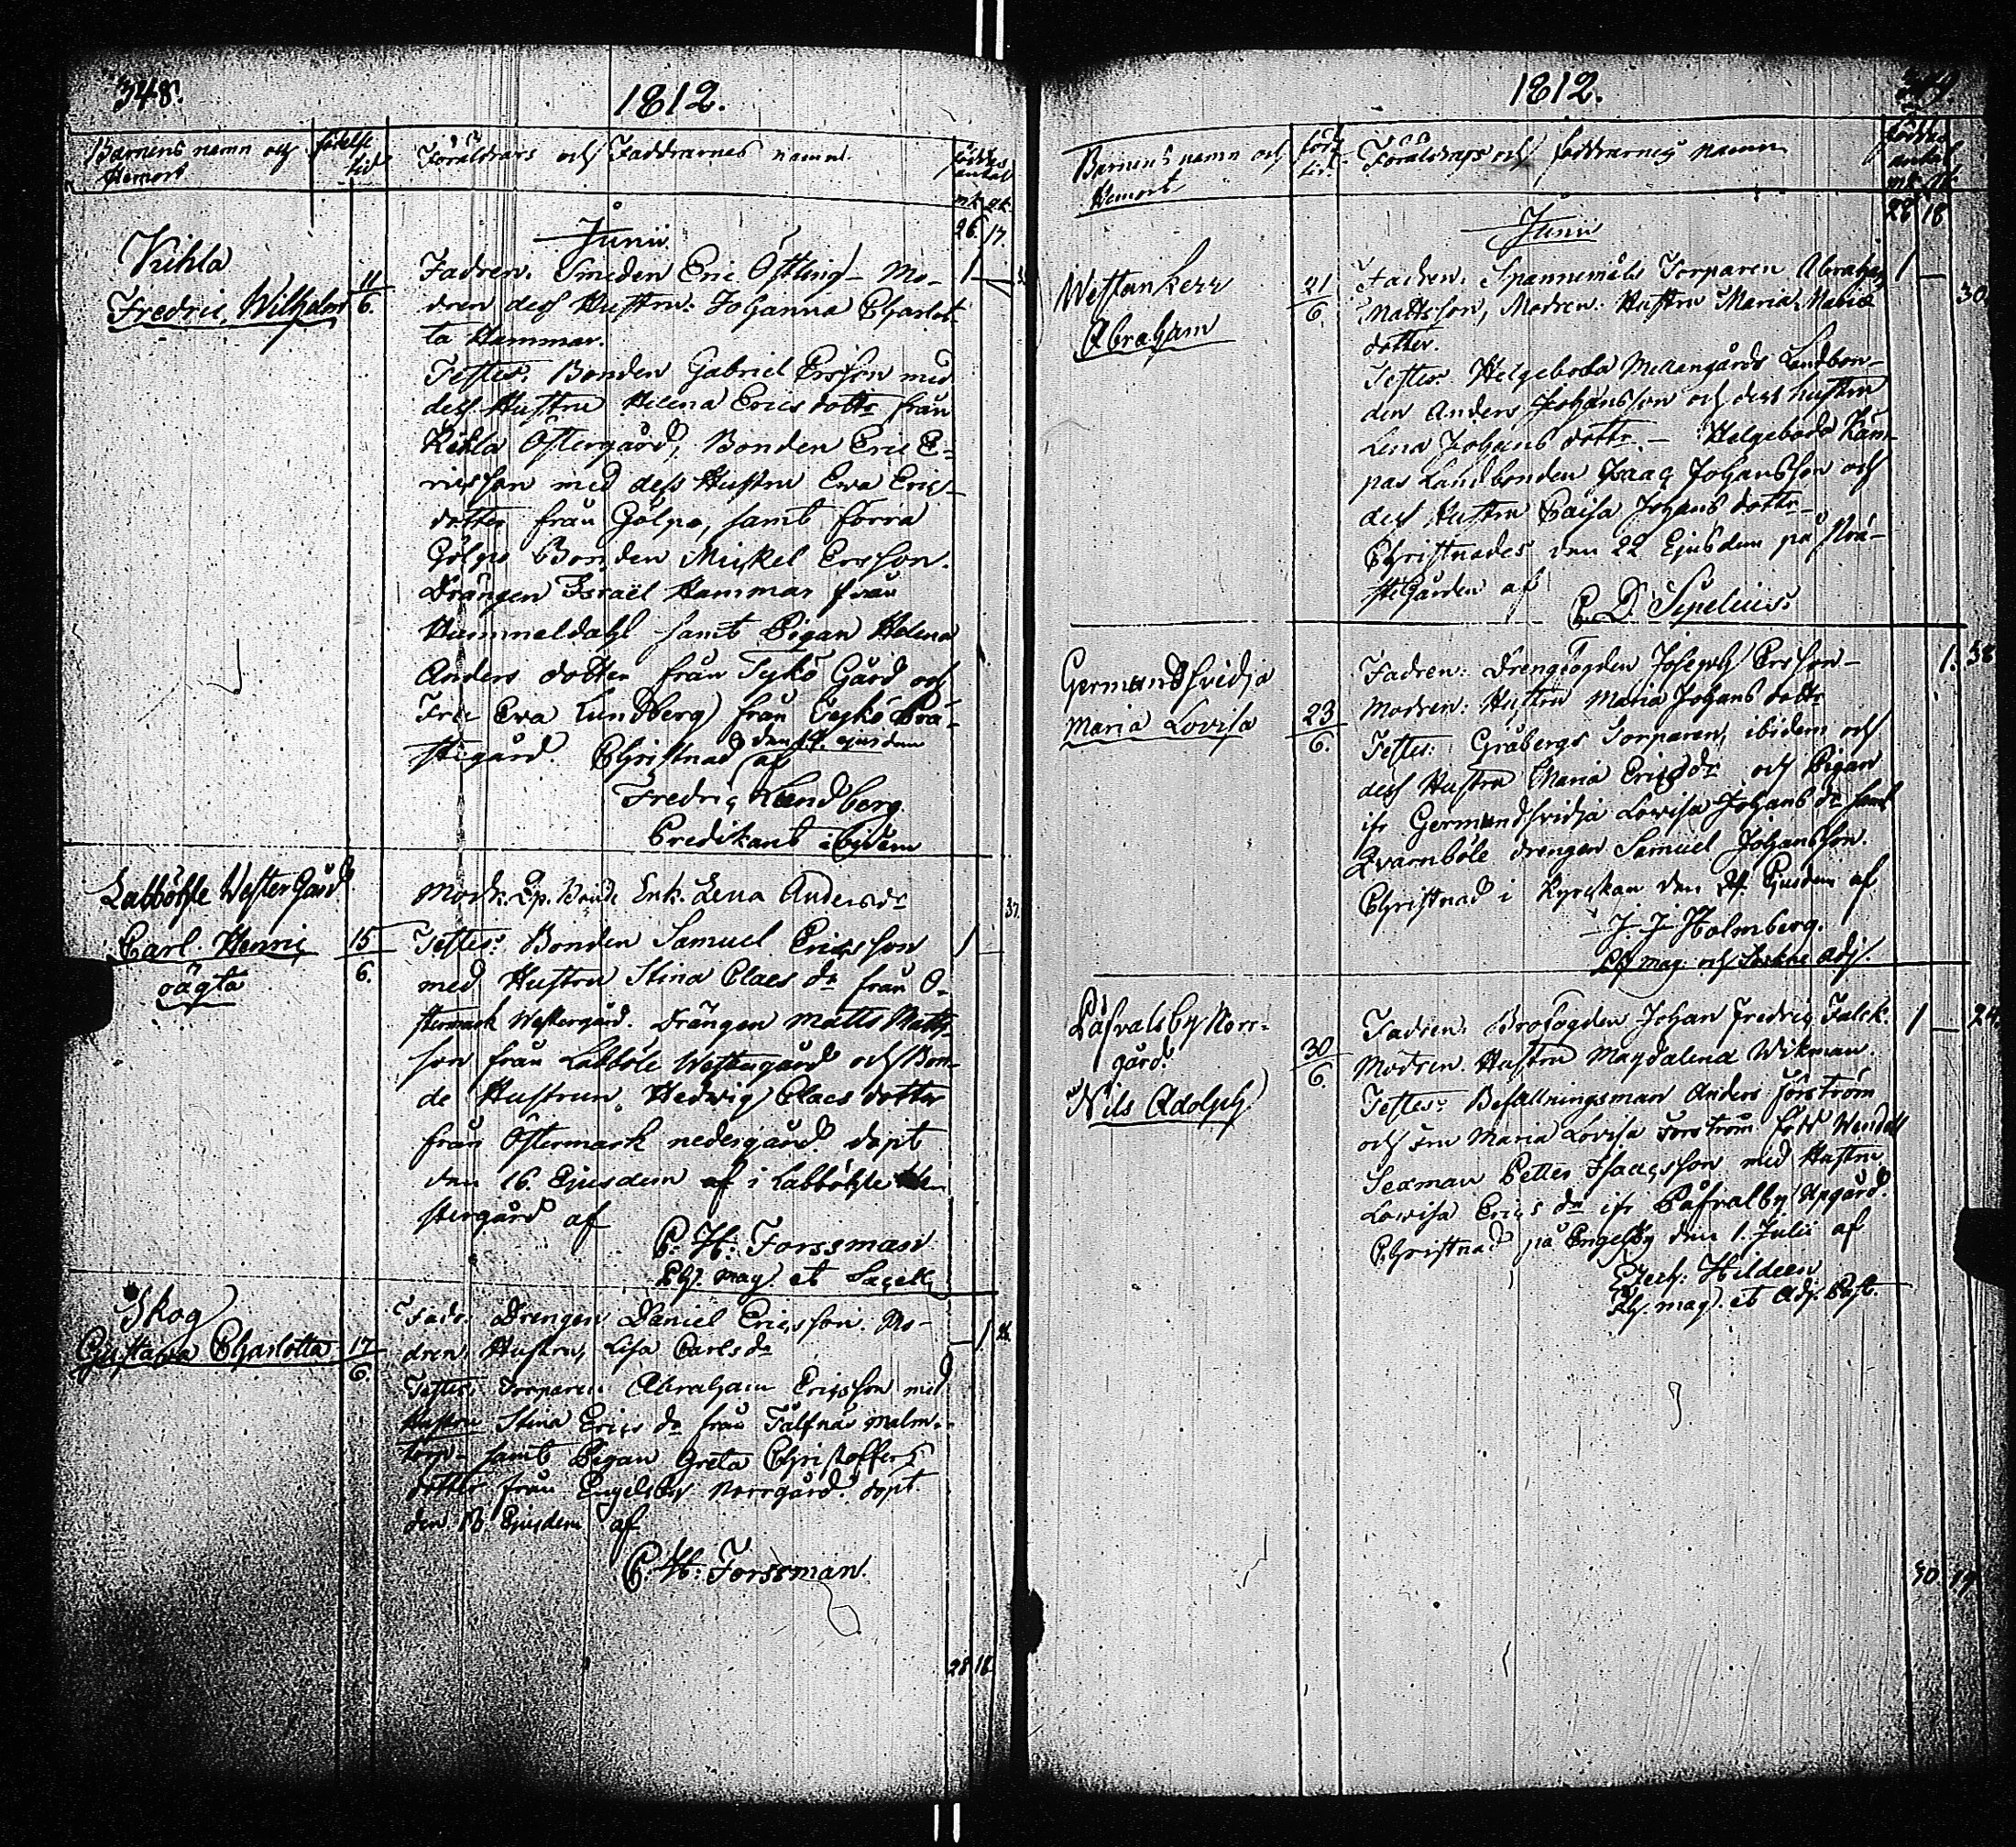 348.
1812.
Barnens namn och
Hemort
födelse
tid
Föräldrars och Faddrarnes namn.
föddes
antal
mk. qk.
26. 17.
Junii
Kihla
Fredric, Wilhelm
11
6.
Fadren. Smeden Eric Östling – Mo-
dren dess Hustru. Johanna Charlot-
ta Hammar.
Testes. Bonden Gabriel Ersson med
dess Hustru Helena Erics dottr från
Kihla Östergård, Bonden Eric E-
ricsson med dess Hustru Eva Erics-
dotter från Gölpo, samt förra
Gölpo Bonden Mickel Ersson.
Drängen Israël Hammar från
Hummeldahl samt Pigan Helena
Anders dotter från Tykö Gård och
Fru Eva Lundberg från Tykö Prä-
stegård. Christnad den 14. ejusdem
af
Fredric Lundberg
Predikant ibidem
1 –
Labböhle Wester Gård
Carl. Henric
oägta
15
6.
Modr. Enk. Lena Andersdr
Testes: Bonden Samuel Ericsson
med Hustru Stina Claes dr från Ö-
stermark Westergård. Drängen Matts Matts-
son från Labböle Westergård och Bon-
de Hustrun. Hedwig Claes dotter
från Östermark nedergård. döpt
den 16. Ejusdem af i Labböhle We-
stergård af
C. H: Forssman
Ph. mag. et Sacell.
1 –
37.
Skog
Gustava Charlotta
17
6.
Fadr. Drengen Daniel Ericsson. Mo-
dren. Hustru, Lisa Carls dr
Testes: Torparen Abraham Ericsson med
Hustru Stina Erics dr från Tälfnäs Malm-
torp samt Pigan Greta Christoffers
dotter från Engelsby Norrgård. döpt
den 18. Ejusdem af
C. H: Forssman.
– 1.
28 18
1812.
349.
Barnens namn och
Hemort
föd.
tid.
Föräldrars och faddrarnes namn
föddes
antal
mk. qk.
28 18
Junii
Westankerr
Abraham
21
6.
Fadren. Spannemåls Torparen Abraham
Mattsson, Modren: Hustru Maria
dotter.
Testes: Helgeboda Mellangårds Landbon-
den Anders Johansson och dess hustru
Lena Johans dottr – Helgeboda Käm-
pas Landbonden Isaac Johansson och
dess Hustru Caisa Johans dottr –
Christnades den 22 Ejusdem på Prä-
stegården af
C. D. Sipelius.
1 –
30.
Germundsvidja
Maria Lovisa
23
6.
Fadren: Drengfogden Joseph Ersson –
Modren: Hustru Maria Johans dottr
Testes: Gråbergs Torparen, ibidem och
dess Hustru Maria Ericsdr och Pigan
ifr Germundsvidja Lovisa Johans dr samt
Qvarnböle drengen Samuel Johansson.
Christnad i Kyrckan den 24. Ejusdem af
J. J. Holmberg.
Ph. mag. och Adj.
1. 38
Påfvalsby Norr-
gård.
Nils Adolph
30
6.
Fadren. Brofogden Johan Fredric Falck.
Modren. Hustru Magdalena Wikman.
Testes: Befallningsman Anders Förström
och fru Maria Lovisa Förström född Wendell
Sexman Petter Isaacsson med Hustru
Lovisa Erics dr ifr Påfvalby Upgård.
Christnad på Engelsby den 1. Julii af
Zech: Hildeen
Ph. mag. et Adj. Past.
1 –
24.
30 19